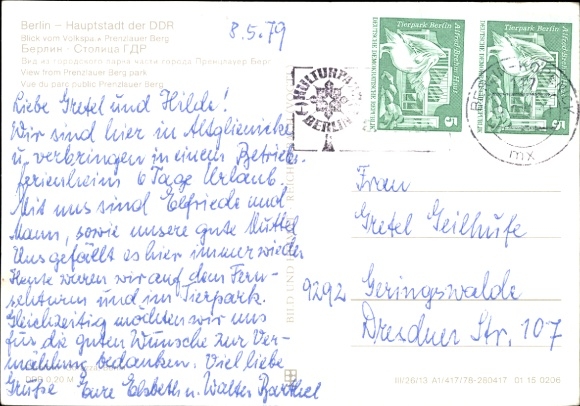 Berlin – Hauptstadt der DDR
Blick vom Volkspark Prenzlauer Berg
Берлин · Столица ГДР
Вид из городского парка части города Пренцлауер Берг
View from Prenzlauer Berg park
Vue du parc public Prenzlauer Berg
8.5.79
Liebe Gretel und Hilde!
Wir sind hier in Altglienicke
u. verbringen in einem Betriebs-
ferienheim 6 Tage Urlaub.
Mit uns sind Elfriede und
Mann, sowie unsere gute Muttel
Uns gefällt es hier immer wieder
Heute waren wir auf dem Fern-
sehturm und im Tierpark.
Gleichzeitig möchten wir uns
für die guten Wünsche zur Ver-
mählung bedanken. Viel liebe
Grüße Eure Elsbeth u. Walter Barthel
0,20 M
BILD UND
Tierpark Berlin
Alfred Brehm Haus
DEUTSCHE DEMOKRATISCHE REPUBLIK
5
Tierpark Berlin
Alfred Brehm Haus
5
KULTURPARK
BERLIN
mx
Frau
Gretel Geilhufe
9292 Geringswalde
Dresdner Str. 107
III/26/13 A1/417/78-280417 01 15 0206